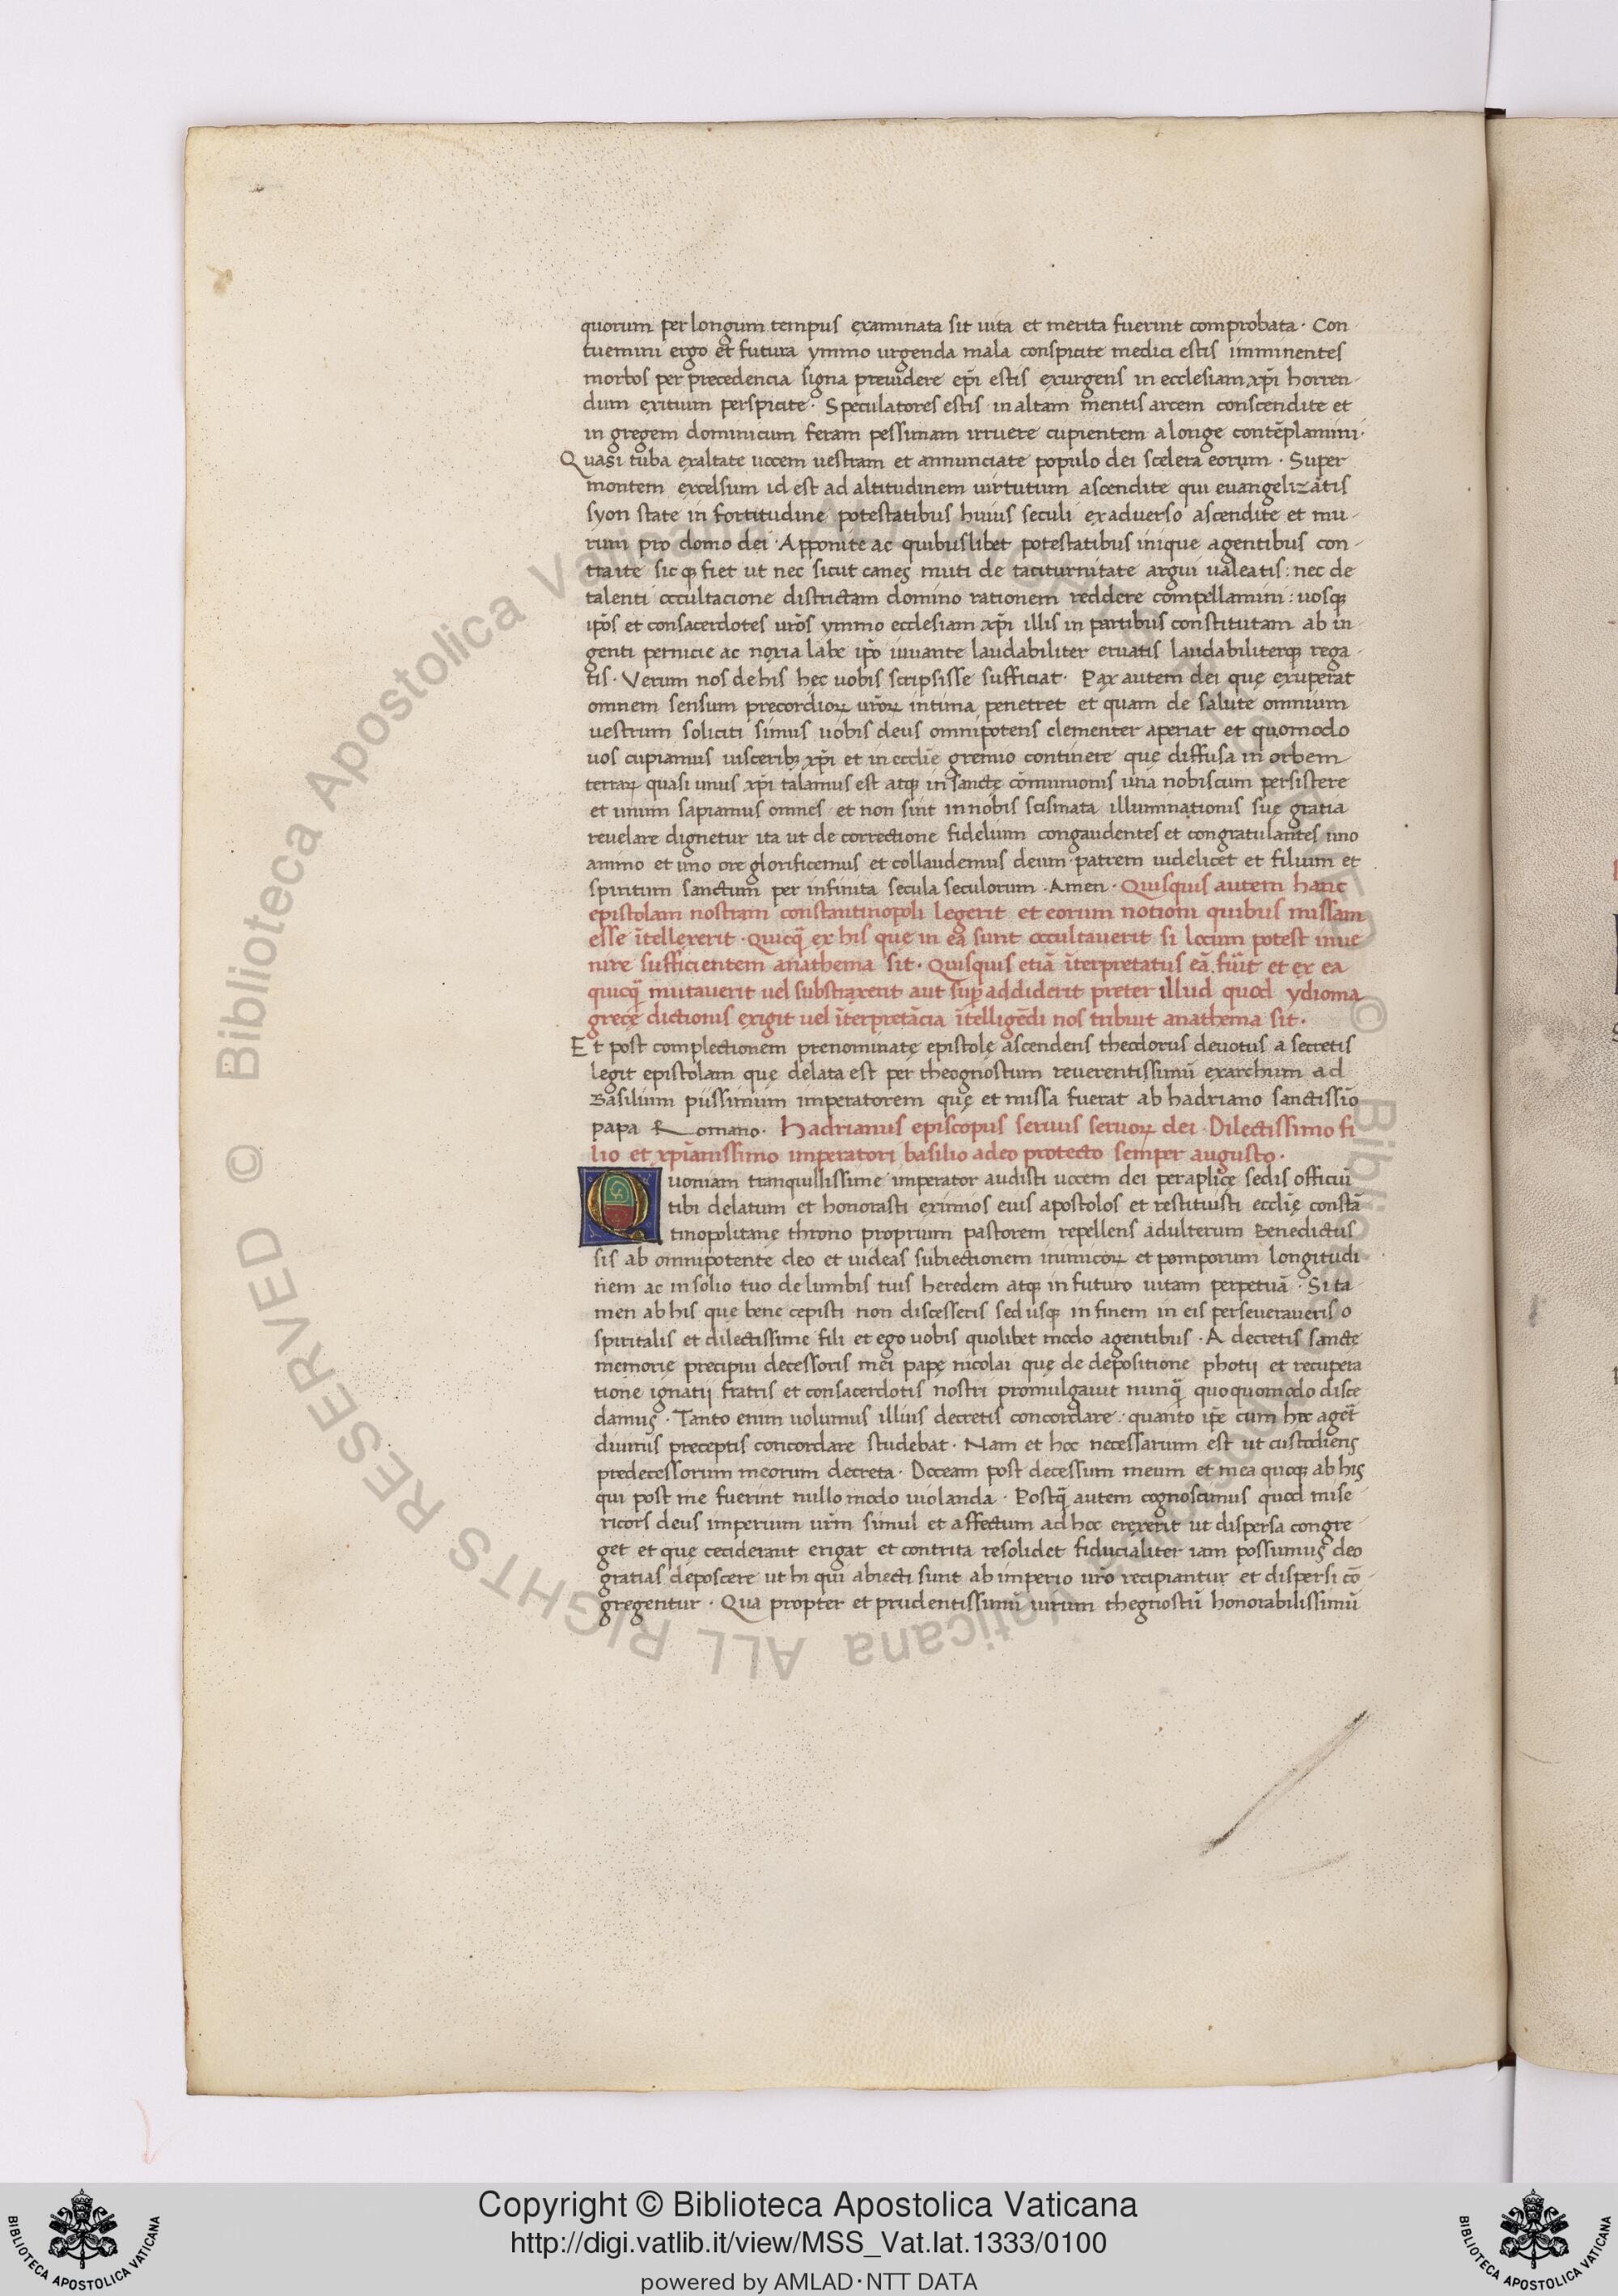 quorum per longum tempus examinata sit uita et merita fuerint comprobata · Con
tuemini ergo et futura ymmo urgenda mala conspicite medici estis imminentes
morbos per precedencia signa preuidere ep̄i estis exurgens in ecclesiam xp̄i horren-
dum exitium perspicite · Speculatores estis in altam mentis arcem conscendite et
in gregem dominicum feram pessimam irruere cupientem a longe contēplamini·
Quasi tuba exaltate uocem uestram et annunciate populo dei scelera eorum · Super
montem excelsum id est ad altitudinem uirtutum ascendite qui euangelizatis
syon state in fortitudine potestatibus huius seculi ex aduerso ascendite et mu-
rum pro domo dei · Apponite ac quibuslibet potestatibus inique agentibus con-
traite sic qꝫ fiet ut nec sicut canes muti de taciturnitate argui ualeatis : nec de
talenti occultacione districtam domino rationem reddere compellamini : uosqꝫ
ip̄os et consacerdotes ur̄os ymmo ecclesiam xp̄i illis in partibus constitutam ab in
genti pernicie ac noxia labe ip̄o iuuante laudabiliter eruatis laudabiliterqꝫ rega-
tis · Verum nos de his hec uobis scripsisse sufficiat · Pax autem dei quę exuperat
omnem sensum precordioꝝ ur̄oꝝ intima penetret et quam de salute omnium
uestrum soliciti simus uobis deus omnipotens clementer aperiat et quomodo
uos cupiamus uisceribꝫ xp̄i et in eccl̄ie gremio continere quę diffusa in orbem
terraꝝ quasi unus xp̄i talamus est atqꝫ in sanctę cōmunionis una nobiscum persistere
et unum sapiamus omnes et non sint in nobis scismata illuminationis suę gratia
reuelare dignetur ita ut de correctione fidelium congaudentes et congratulantes uno
animo et uno ore glorificemus et collaudemus deum patrem uidelicet et filium et
spiritum sanctum per infinita secula seculorum · Amen · Quisquis autem hanc
epistolam nostram constantinopoli legerit et eorum notioni quibus missam
esse ītellexerit · quicq̄ ex his que in ea sunt occultauerit si locum potest inue
nire sufficientem anathema sit · Quisquis etiā īterpretatus eā fūit et ex ea
quicq̄ mutauerit uel substraxerit aut sup̄addiderit preter illud quod ydioma
grecę dictionis exigit uel īterpretācia ītelligēdi nos tribuit anathema sit ·
Et post complectionem prenominatę epistolę ascendens theodorus deuotus a secretis
legit epistolam quę delata est per theognostum reuerentissimū exarchum ad
Basilium piissimum imperatorem quę et missa fuerat ab hadriano sanctissīo
papa Romano · Hadrianus episcopus seruus seruoꝝ dei · Dilectissimo fi
lio et xp̄ianissimo imperatori basilio a deo protecto semper augusto ·
Quoniam tranquillissime imperator audisti uocem dei per aplicę sedis officiū
tibi delatum et honorasti eximios eius apostolos et restituisti eccl̄ię constā
tinopolitanę throno proprium pastorem repellens adulterum Benedictus
sis ab omnipotente deo et uideas subiectionem inimicoꝝ et pomporum longitudi
nem ac in solio tuo de lumbis tuis heredem atqꝫ in futuro uitam perpetuā · Si ta-
men ab his que bene cepisti non discesseris sed usqꝫ in finem in eis perseueraueris o
spiritalis et dilectissime fili et ego uobis quolibet modo agentibus · A decretis sancte
memorię precipui decessoris mei papę nicolai quę de depositione photij et recupera
tione ignatij fratris et consacerdotis nostri promulgauit nunq̄ quoquomodo disce
damus · Tanto enim uolumus illius decretis concordare : quanto ip̄e cum hęc aget̄
diuinis preceptis concordare studebat · Nam et hoc necessarum est ut custodiens
predecessorum meorum decreta · Doceam post decessum meum et mea quoqꝫ ab his
qui post me fuerint nullo modo uiolanda · Postq̄ autem cognoscimus quod mise
ricors deus imperium ur̄m simul et affectum ad hoc erexerit ut dispersa congre
get et quę ceciderant erigat et contrita resolidet fiducialiter iam possumus deo
gratias deposcere ut hi qui abiecti sunt ab imperio ur̄o recipiantur et dispersi cō-
gregentur · Qua propter et prudentissimū uirum thegnostū honorabilissimū
© Biblioteca Apostolica Vaticana ALL RIGHTS RESERVED © Biblioteca Apostolica Vaticana ALL RIGHTS RESERVED
Copyright © Biblioteca Apostolica Vaticana
http://digi.vatlib.it/view/MSS_Vat.lat.1333/0100
powered by AMLAD·NTT DATA
BIBLIOTECA APOSTOLICA VATICANA
BIBLIOTECA APOSTOLICA VATICANA